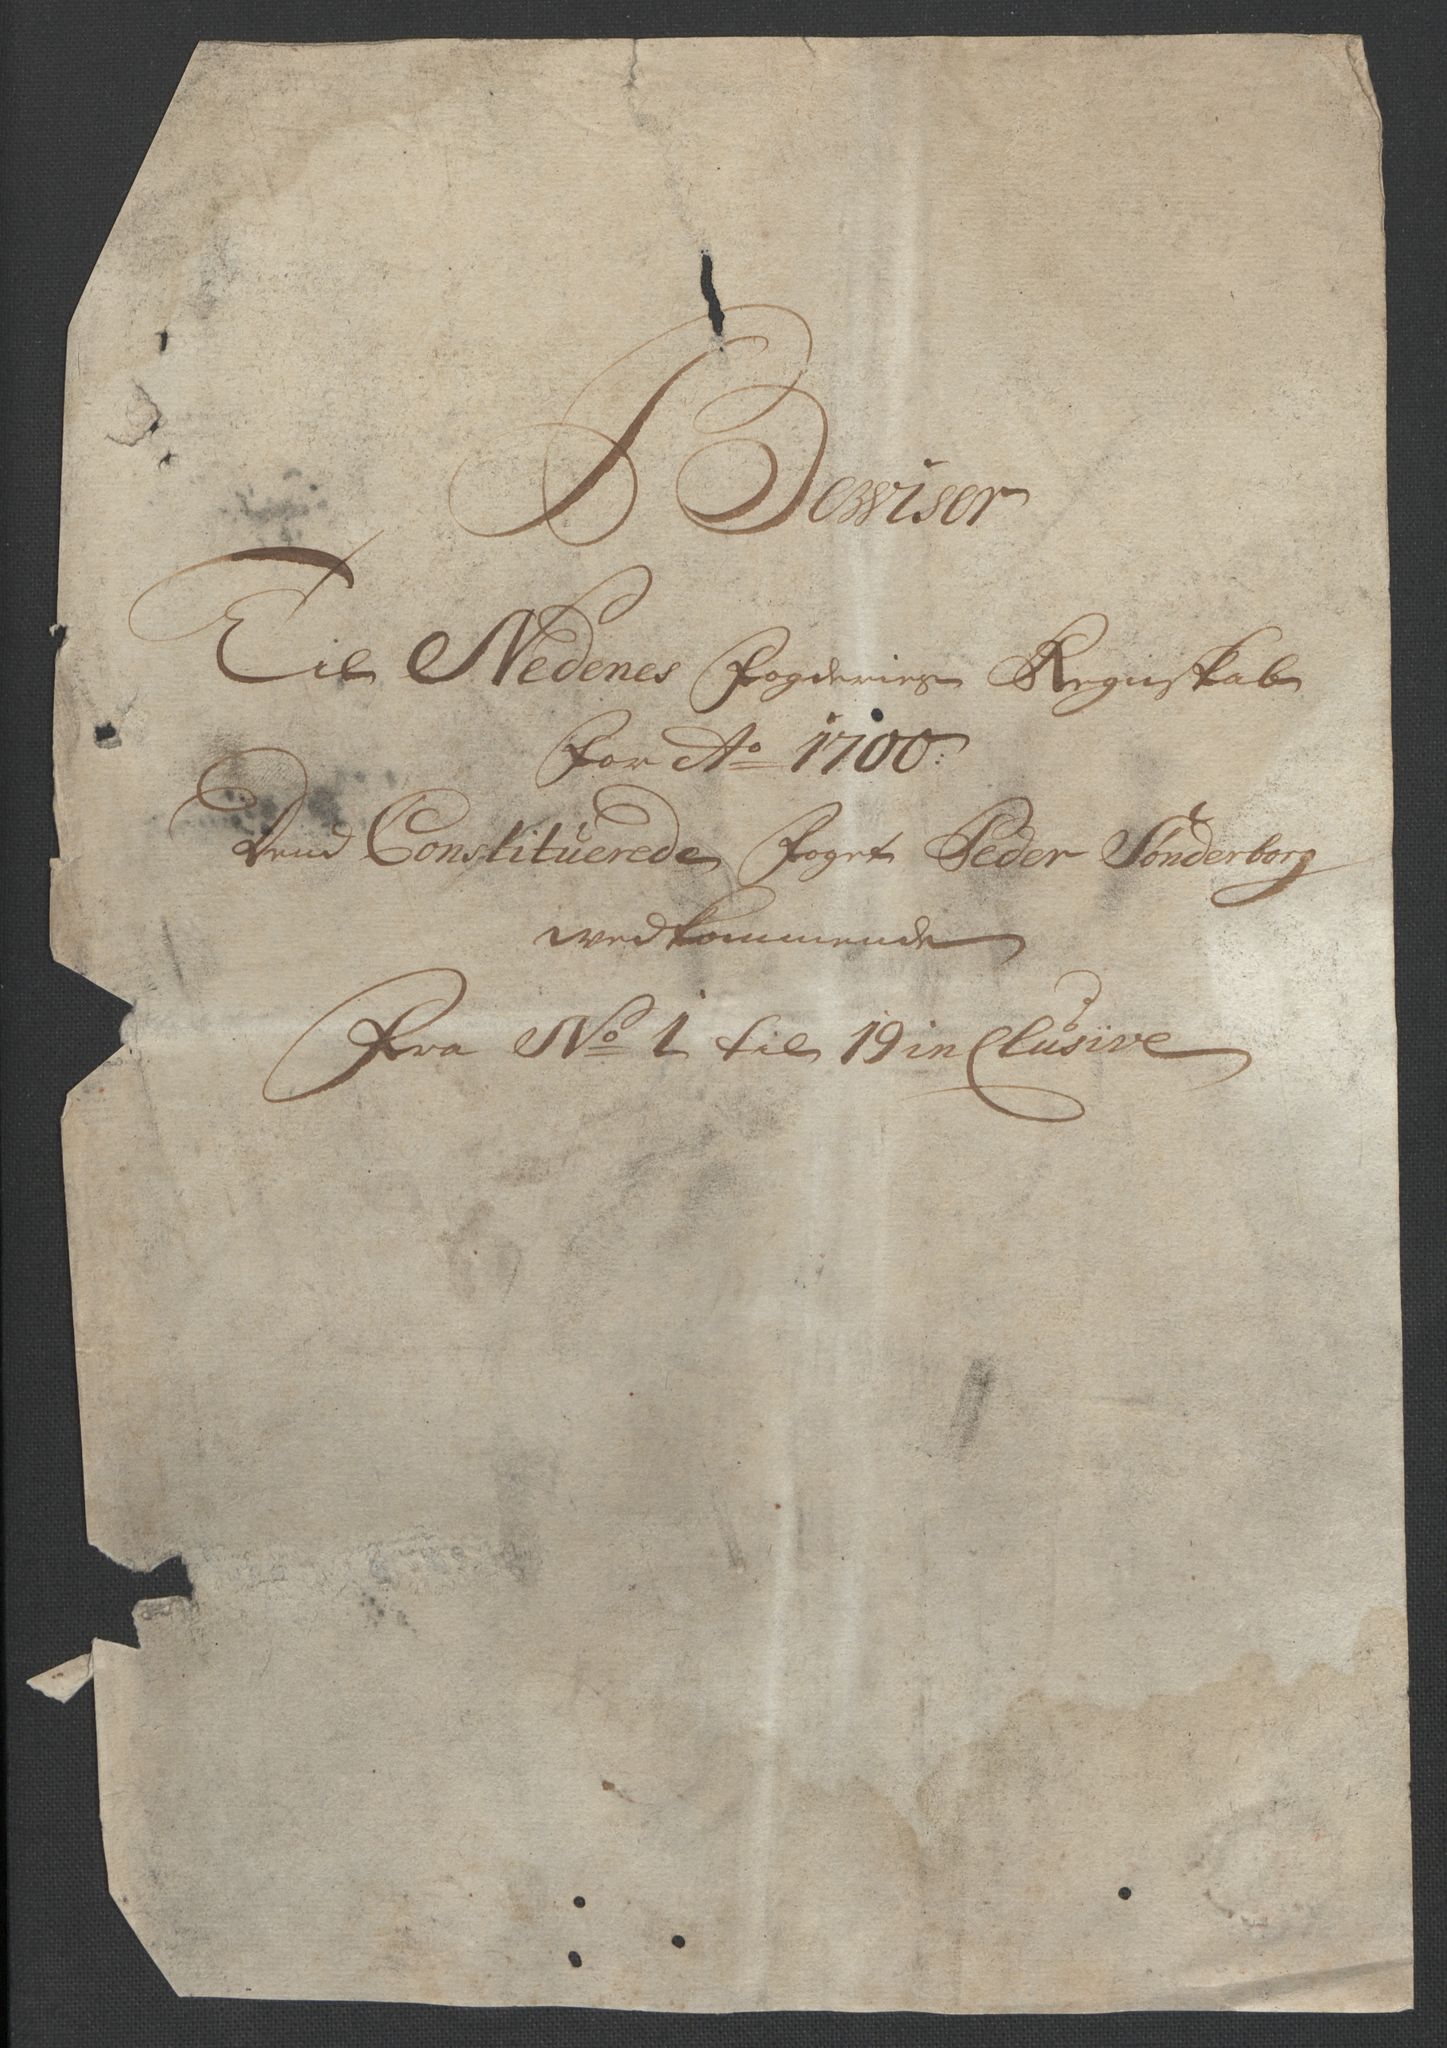 Bewiser
Til Nedenes Fogderies Regnskab
for Ao 1700.
Dend Constituerede foget Peder Sönderborg
wedkommende
Fra No 1 til 19 inClusive